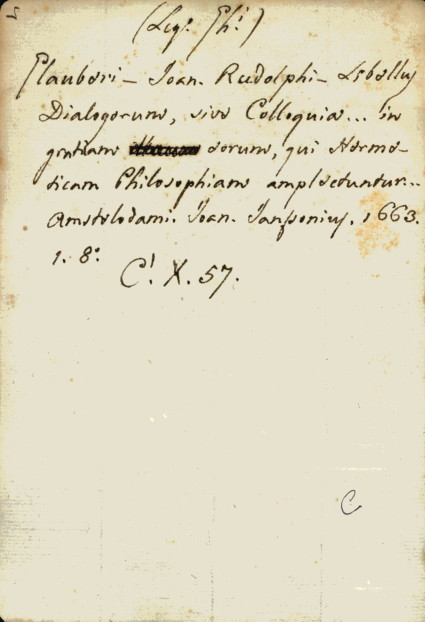 (Leg. Ph.)
Glauberi - Joan. Rudolphi - Libellus
Dialogorum, sive Colloquia... in
gratiam eorum, qui Herme-
ticam Philosophiam amplectuntur...
Amstelodami. Joan. Janssonius. 1663.
1. 8º
C! X. 57.
C